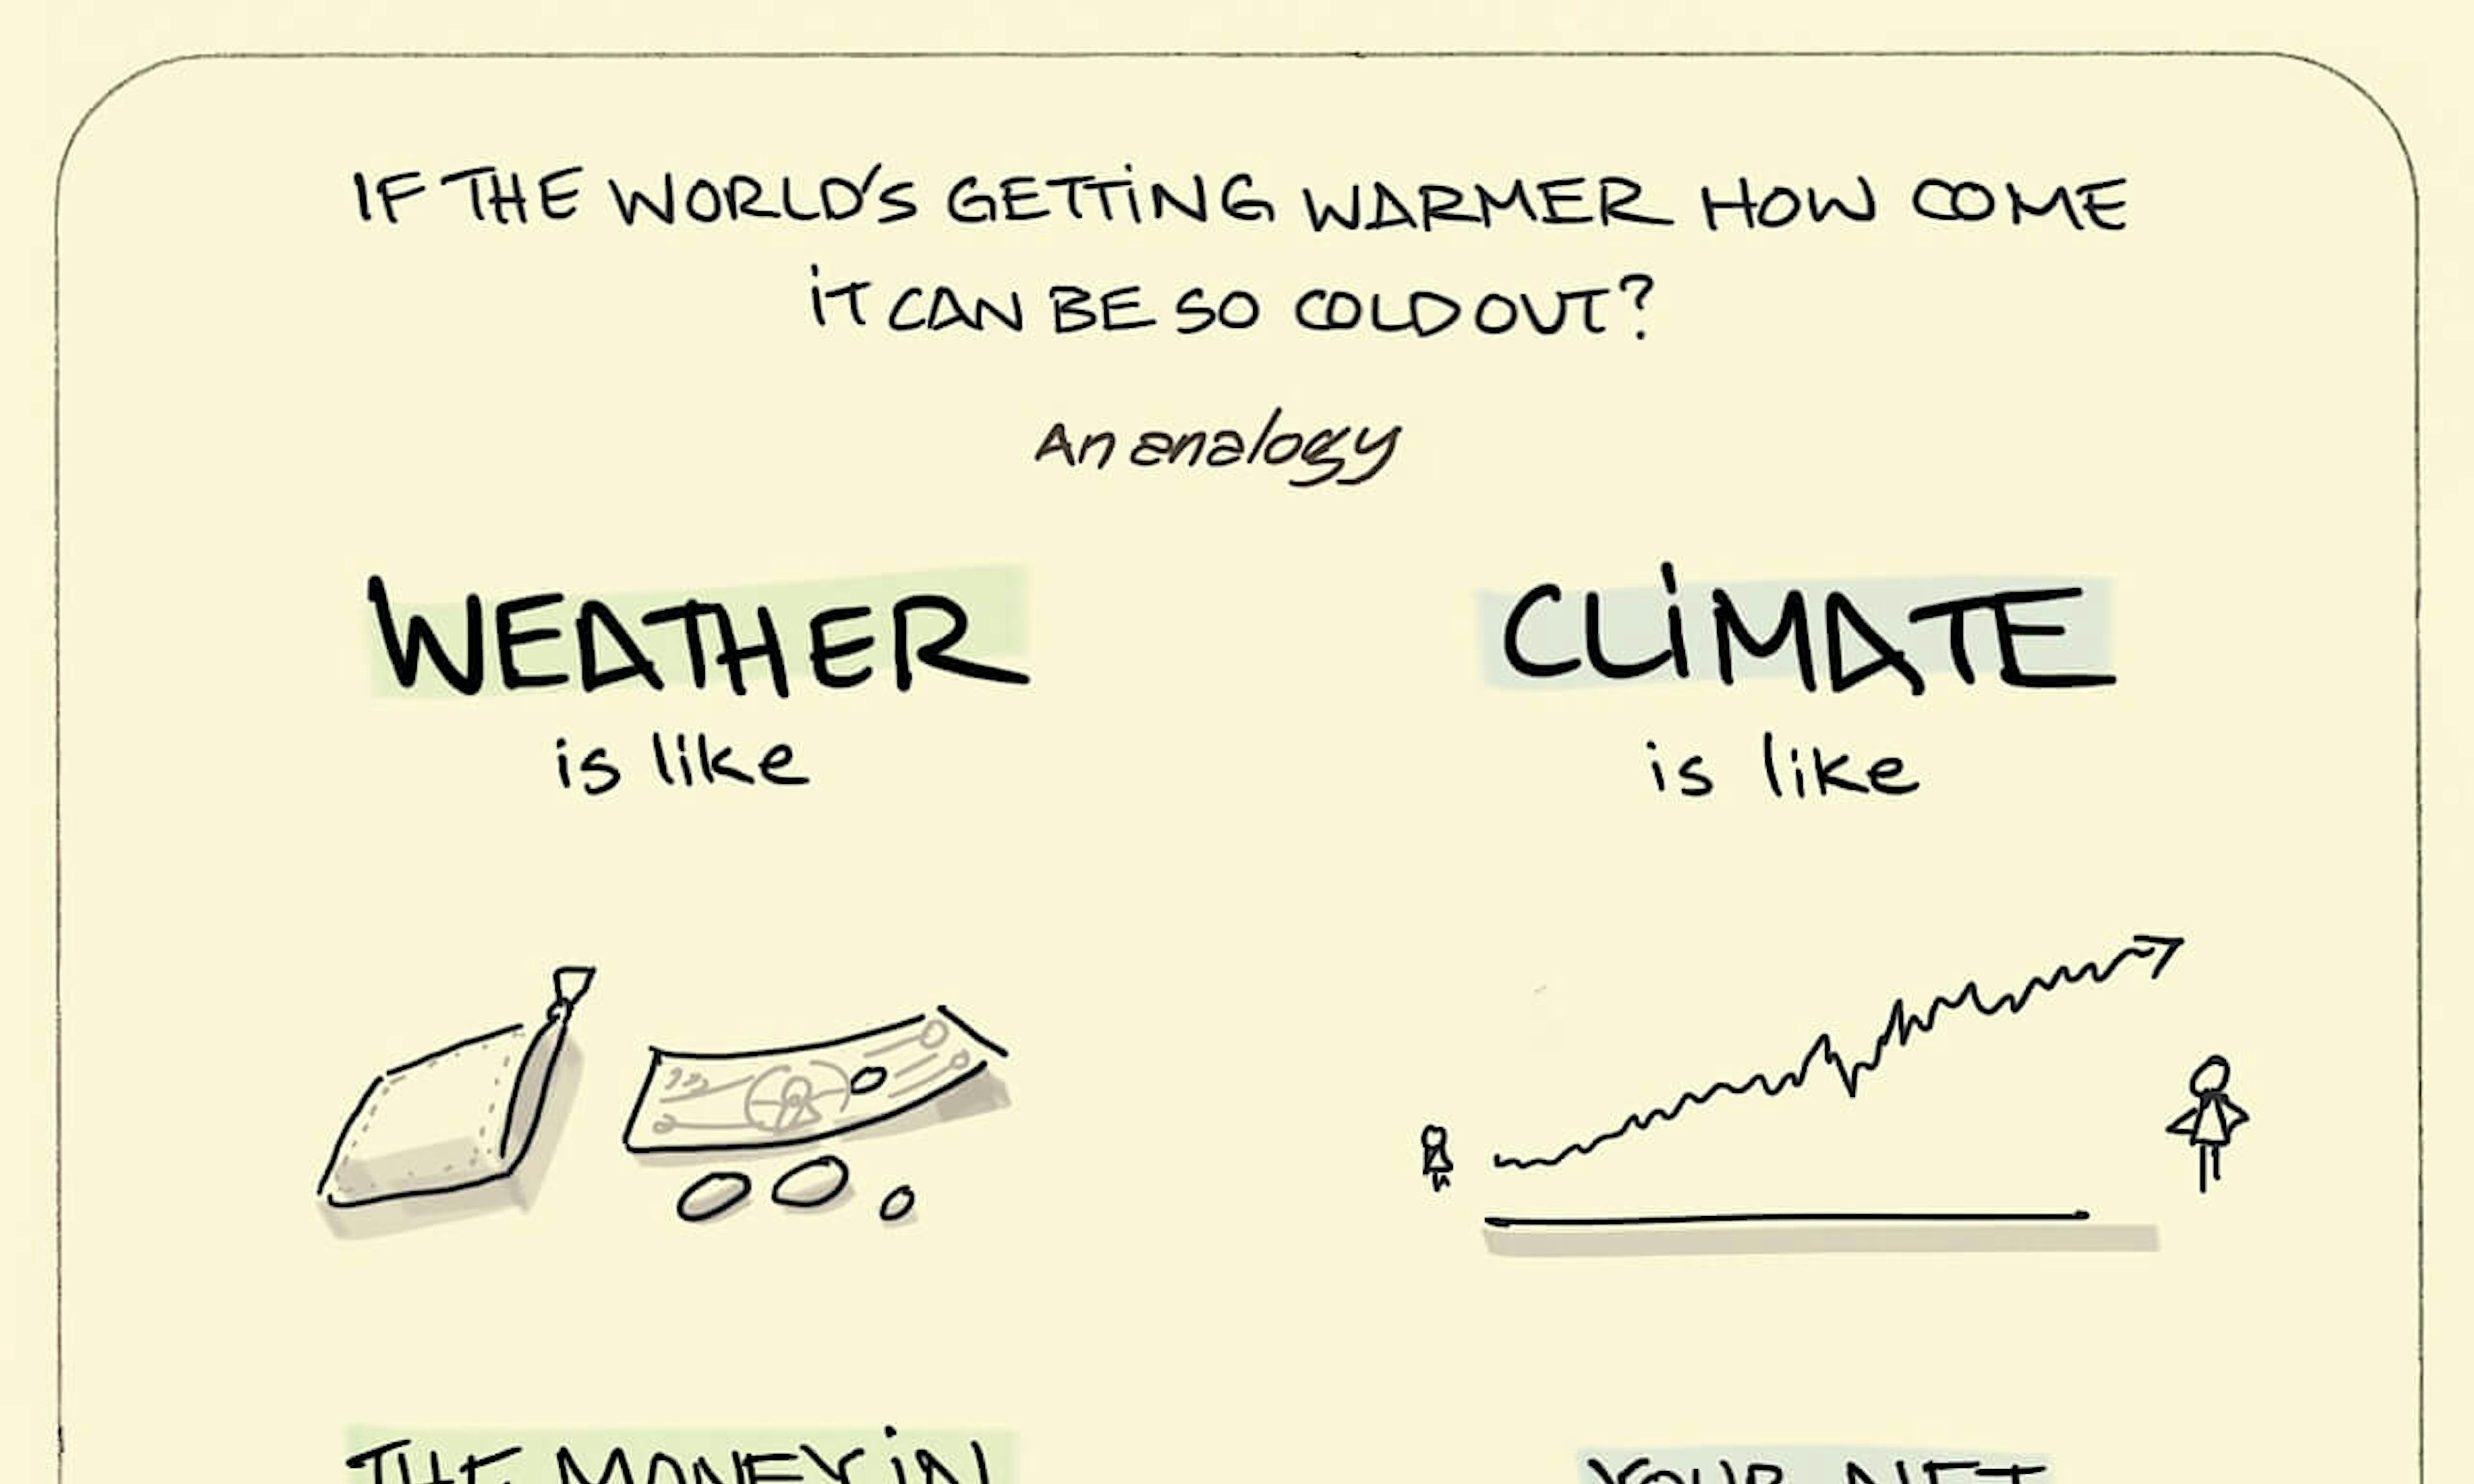 IF THE WORLD'S GETTING WARMER HOW COME
IT CAN BE SO COLD OUT?
An analogy
WEATHER
is like
CLIMATE
is like
THE MONEY IN
YOUR NET